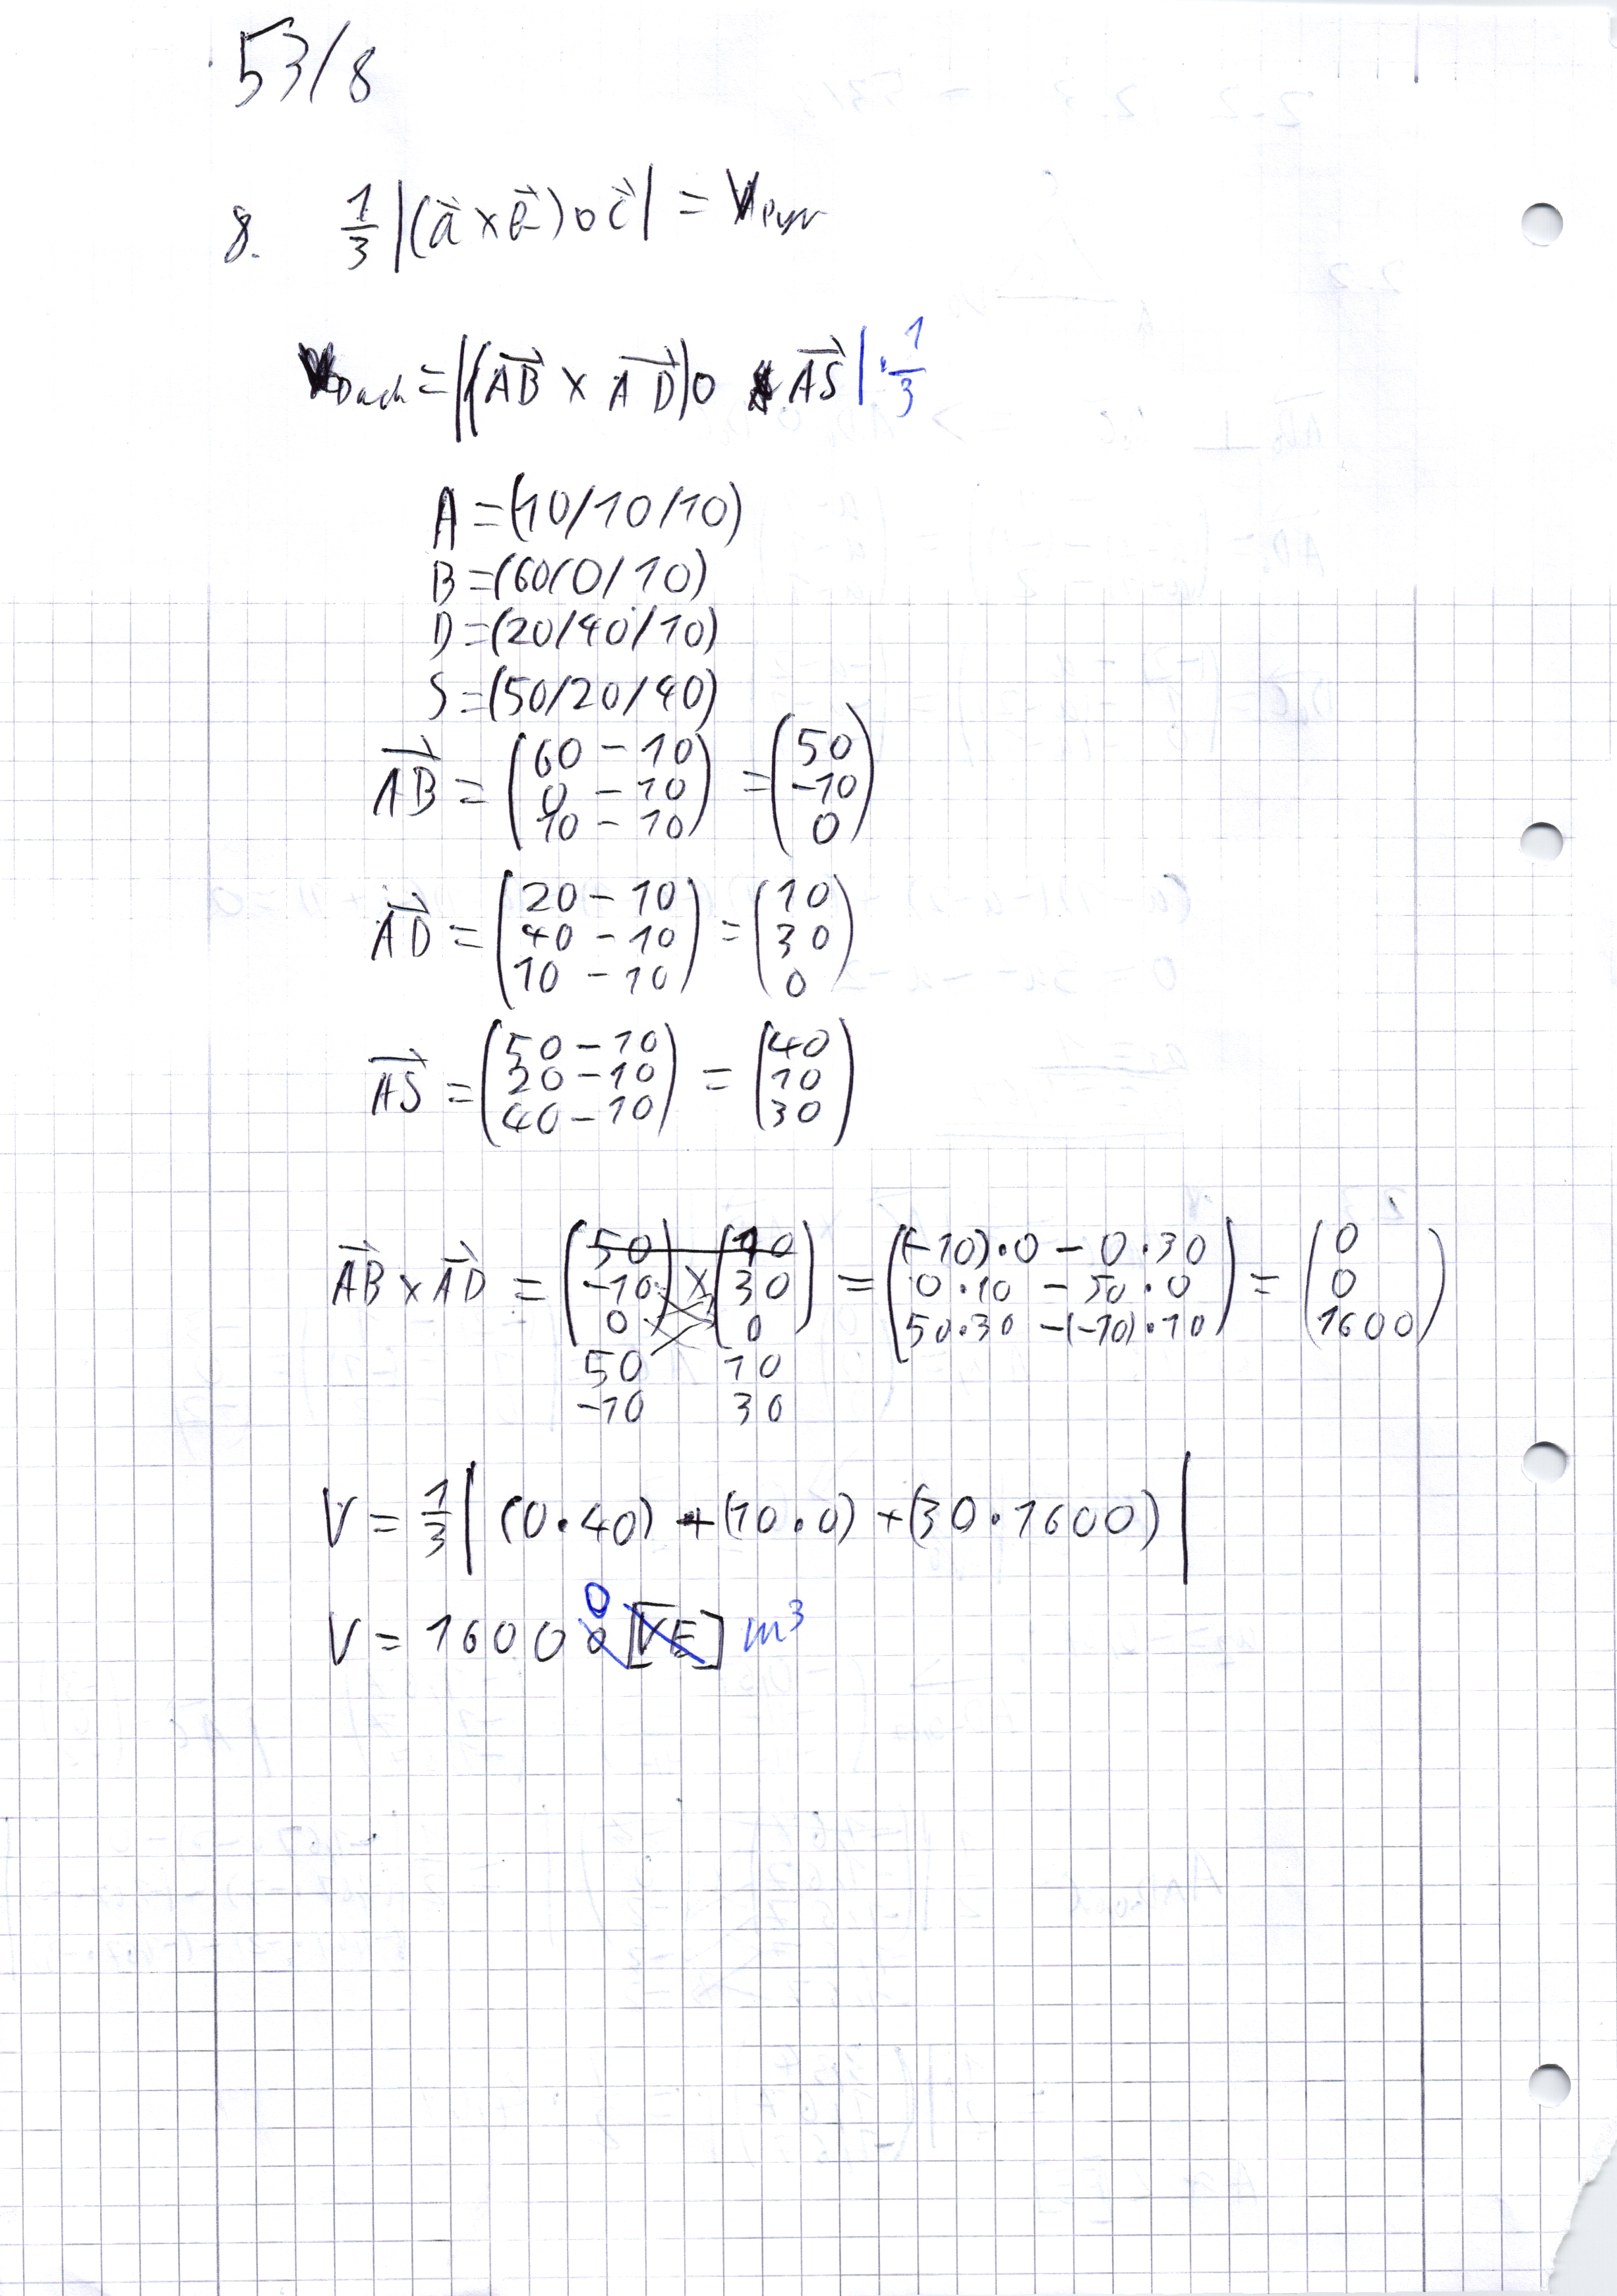 53/8
8. 1/3 |(a⃗ × b⃗) ∘ c⃗| = V Pyr
V Dach = |(AB⃗ × AD⃗) ∘ AS⃗| · 1/3
A = (10/10/10)
B = (60/0/10)
D = (20/40/10)
S = (50/20/40)
AB⃗ = (60 - 10 / 0 - 10 / 10 - 10) = (50 / -10 / 0)
AD⃗ = (20 - 10 / 40 - 10 / 10 - 10) = (10 / 30 / 0)
AS⃗ = (50 - 10 / 20 - 10 / 40 - 10) = (40 / 10 / 30)
AB⃗ × AD⃗ = (50 / -10 / 0) × (10 / 30 / 0) = ((-10)·0 - 0·30 / 0·10 - 50·0 / 50·30 - (-10)·10) = (0 / 0 / 1600)
50 10
-10 30
V = 1/3 | (0·40) + (10·0) + (30·1600) |
V = 16000 [VE] m³